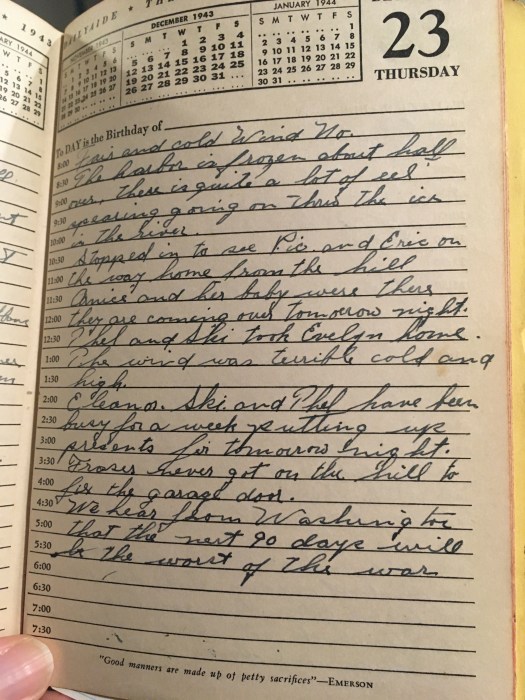 DAYSIDE * TH
* 1943
DECEMBER 1943
JANUARY 1944
S M T W T F S
S M T W T F S
1 2 3 4
1
5 6 7 8 9 10 11
2 3 4 5 6 7 8
12 13 14 15 16 17 18
9 10 11 12 13 14 15
19 20 21 22 23 24 25
16 17 18 19 20 21 22
26 27 28 29 30 31
23 24 25 26 27 28 29
30 31
23
THURSDAY
To DAY is the Birthday of
8:00 Fair and cold Wind No.
8:30 The harbor is frozen about half
9:00 over, there is quite a lot of eel
9:30 spearing going on thru the ice
10:00 in the river.
10:30 Stopped in to see Pic. and Eric on
11:00 the way home from the hill
11:30 and her baby were there
12:00 they are coming over tomorrow night.
12:30 Phel and Ski took Evelyn home.
1:00 The wind was terrible cold and
1:30 high.
2:00 Eleanor. Ski and Phel have been
2:30 busy for a week putting up
3:00 presents for tomorrow night.
3:30 Fraser never got on the hill to
4:00 fix the garage door.
4:30 We hear from Washington
5:00 that the next 90 days will
5:30 be the worst of the war
6:00
6:30
7:00
7:30
"Good manners are made up of petty sacrifices"—EMERSON